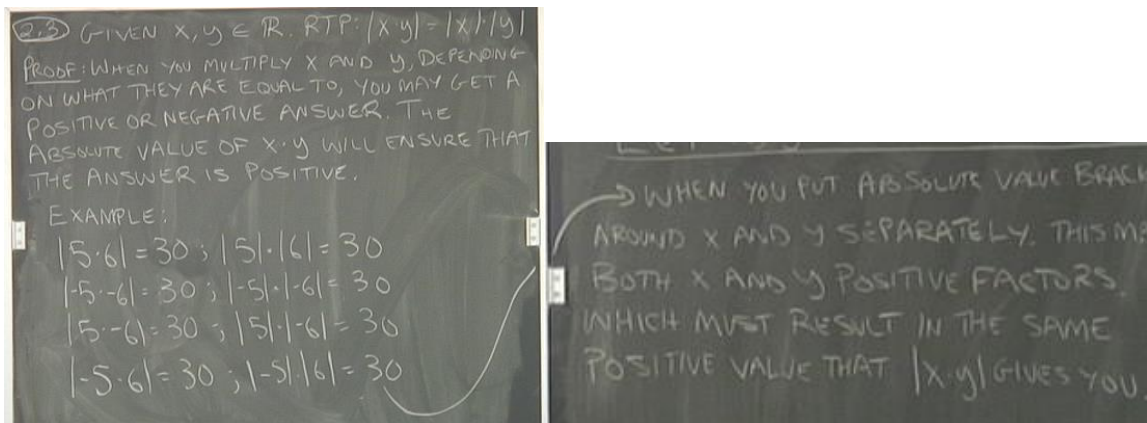 2.3 GIVEN X, y ∈ ℝ. RTP: |X·y| = |X|·|y|
PROOF: WHEN YOU MULTIPLY X AND y, DEPENDING
ON WHAT THEY ARE EQUAL TO, YOU MAY GET A
POSITIVE OR NEGATIVE ANSWER. THE
ABSOLUTE VALUE OF X·y WILL ENSURE THAT
THE ANSWER IS POSITIVE.
EXAMPLE:
|5·6| = 30 ; |5|·|6| = 30
|-5·-6| = 30 ; |-5|·|-6| = 30
|5·-6| = 30 ; |5|·|-6| = 30
|-5·6| = 30 ; |-5|·|6| = 30
→ WHEN YOU PUT ABSOLUTE VALUE BRACK
AROUND X AND y SEPARATELY. THIS ME
BOTH X AND y POSITIVE FACTORS.
WHICH MUST RESULT IN THE SAME
POSITIVE VALUE THAT |X·y| GIVES YOU.